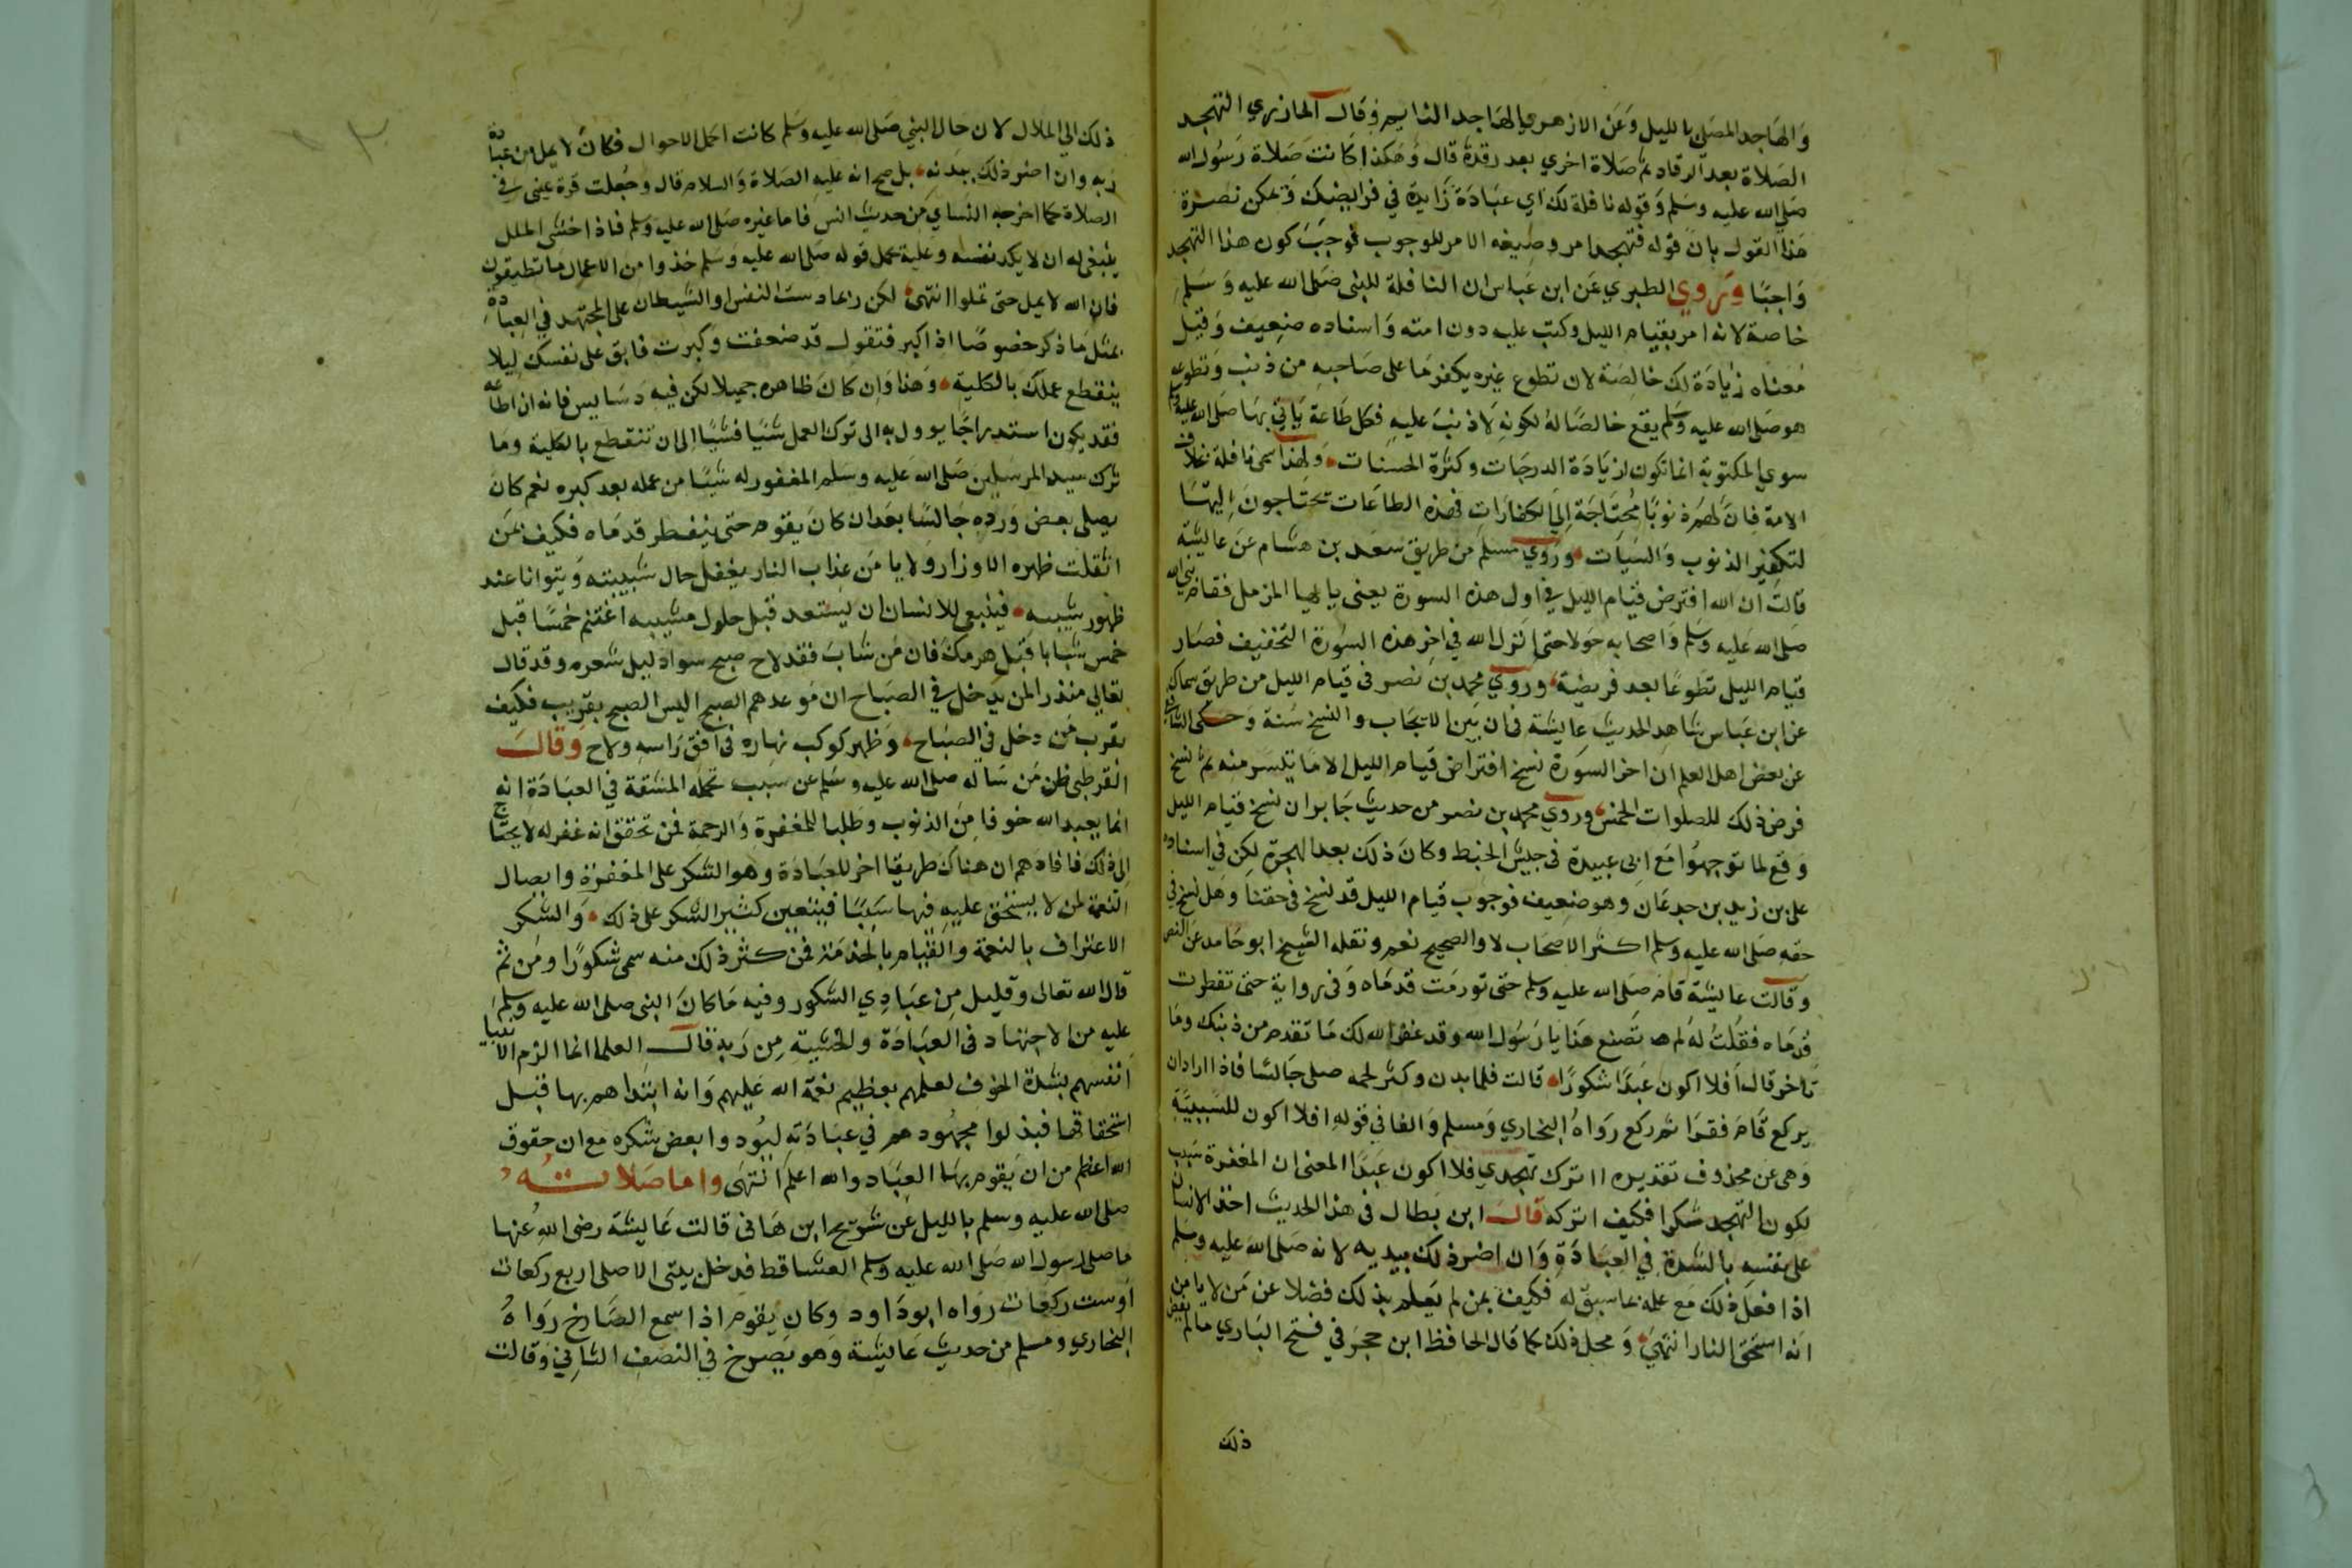 والهاجد المصلي بالليل وعن الازهري الهاجد النايم وقال المازري التهجد
الصلاة بعد الرقاد ثم صلاة اخري بعد رقدة قال وهكذا كانت صلاة رسول الله
صلى الله عليه وسلم وقوله نافلة لك اي عبادة زايدة في فرايضك ويمكن نصرة
هذا القول بان قوله فتهجد امر وصيغه الامر للوجوب فوجب كون هذا التهجد
واجبا وروي الطبري عن ابن عباس ان النافلة للنبي صلى الله عليه وسلم
خاصة لانه امر بقيام الليل وكتب عليه دون امته واسناده ضعيف وقيل
معناه زيادة لك خالصة لان تطوع غيره يكفر ما على صاحبه من ذنب وتطوعه
هو صلى الله عليه وسلم يقع خالصا له لكونه لا ذنب عليه فكل طاعة ياتي بها صلى الله عليه وسلم
سوي المكتوبة انما تكون لزيادة الدرجات وكثرة الحسنات ولهذا سمي نافلة بخلاف
الامة فان لهم ذنوبا محتاجة الي الكفارات فهذه الطاعات تحتاجون اليها
لتكفير الذنوب والسيات وروي مسلم من طريق سعد بن هشام عن عايشة
قالت ان الله افترض قيام الليل في اول هذه السورة يعني يا ايها المزمل فقام نبي الله
صلى الله عليه وسلم واصحابه حولا حتى انزل الله في اخر هذه السورة التخفيف فصار
قيام الليل تطوعا بعد فريضة وروي محمد بن نصر في قيام الليل من طريق سماك
عن ابن عباس شاهد الحديث عايشة في ان بين الايجاب والنسخ سنة وحكى الشافعي
عن بعض اهل العلم ان اخر السورة نسخ افتراض قيام الليل الا ما تيسر منه ثم نسخ
فرض ذلك للصلوات الخمس وروي محمد بن نصر من حديث جابر ان نسخ قيام الليل
وقع لما توجهوا مع ابي عبيدة في جيش الخبط وكان ذلك بعد الهجرة لكن في اسناده
علي بن زيد بن جدعان وهو ضعيف فوجوب قيام الليل قد نسخ في حقنا وهل نسخ في
حقه صلى الله عليه وسلم اكثر الاصحاب لا والصحيح نعم ونقله الشيخ ابو حامد عن النص
وقالت عايشة قام صلى الله عليه وسلم حتى تورمت قدماه وفي رواية حتى تفطرت
قدماه فقلت له لم تصنع هذا يا رسول الله وقد غفر الله لك ما تقدم من ذنبك وما
تاخر قال افلا اكون عبدا شكورا قالت فلما بدن وكثر لحمه صلى جالسا فاذا اراد ان
يركع قام فقرا ثم ركع رواه البخاري ومسلم والفا في قوله افلا اكون للسببية
وهي عن محذوف تقديره ااترك تهجدي فلا اكون عبدا المعنى ان المغفرة سبب
لكون التهجد شكرا فكيف اتركه قال ابن بطال في هذا الحديث اخذ الانسان
على نفسه بالشدة في العبادة وان اضر ذلك ببدنه لانه صلى الله عليه وسلم
اذا فعل ذلك مع علمه بما سبق له فكيف بمن لم يعلم بذلك فضلا عن من لا يامن
انه استحق النار انتهى ومحل ذلك كما قال الحافظ ابن حجر في فتح الباري ما لم يفض
ذلك
ذلك الي الملال لان حال النبي صلى الله عليه وسلم كانت اكمل الاحوال فكان لا يمل من عبادة
ربه وان اضر ذلك ببدنه بل صح انه عليه الصلاة والسلام قال وجعلت قرة عيني في
الصلاة كما اخرجه النساي من حديث انس فاما غيره صلى الله عليه وسلم فاذا خشي الملل
ينبغي له ان لا يكد نفسه وعليه يحمل قوله صلى الله عليه وسلم خذوا من الاعمال ما تطيقون
فان الله لا يمل حتى تملوا انتهى لكن ربما دست النفس او الشيطان على المجتهد في العبادة
بمثل ما ذكر خصوصا اذا كبر فتقول قد ضعفت وكبرت فابق على نفسك ليلا
ينقطع عملك بالكلية وهذا وان كان ظاهره جميلا لكن فيه دسايس فانه ان اطاعه
فقد يكون استدراجا يوول به الى ترك العمل شيا فشيا الى ان تنقطع بالكلية وما
ترك سيد المرسلين صلى الله عليه وسلم المغفور له شيا من عمله بعد كبره نعم كان
يصلي بعض ورده جالسا بعد ان كان يقوم حتى ينفطر قدماه فكيف بمن
اثقلت ظهره الاوزار ولا يامن عذاب النار يغفل حال شبيبته ويتوانا عند
ظهور شيبه فينبغي للانسان ان يستعد قبل حلول مشيبه اغتنم خمسا قبل
خمس شبابا قبل هرمك فان من شاب فقد لاح صبح سواد ليل شعره وقد قال
تعالى منذرا لمن يدخل في الصباح ان موعدهم الصبح اليس الصبح بقريب فكيف
بقرب من دخل في الصباح وظهر كوكب نهاره في افق راسه ولاح وقال
القرطبي ظن من ساله صلى الله عليه وسلم عن سبب تحمله المشقة في العبادة انه
انما يعبد الله خوفا من الذنوب وطلبا للمغفرة والرحمة فمن تحقق انه غفر له لا يحتاج
الى ذلك فافادهم ان هناك طريقا اخر للعبادة وهو الشكر على المغفرة وايصال
النعمة لمن لا يستحق عليه فيها سببا فيتعين كثير الشكر على ذلك والشكر
الاعتراف بالنعمة والقيام بالخدمة فمن كثر ذلك منه سمي شكورا ومن ثم
قال الله تعالى وقليل من عبادي الشكور وفيه ما كان النبي صلى الله عليه وسلم
عليه من الاجتهاد في العبادة والخشية من ربه قال العلما انما الزم الانبيا
انفسهم بشدة الخوف لعلمهم بعظيم نعمة الله عليهم وانه ابتداهم بها قبل
استحقاقها فبذلوا مجهودهم في عبادته ليودوا بعض شكره مع ان حقوق
الله اعظم من ان يقوم بها العباد والله اعلم انتهى واما صلاته
صلى الله عليه وسلم بالليل عن شريح ابن هانى قالت عايشة رضي الله عنها
ما صلى رسول الله صلى الله عليه وسلم العشا قط فدخل بيتي الا صلى اربع ركعات
او ست ركعات رواه ابو داود وكان يقوم اذا سمع الصارخ رواه
البخاري ومسلم من حديث عايشة وهو يصرخ في النصف الثاني وقالت